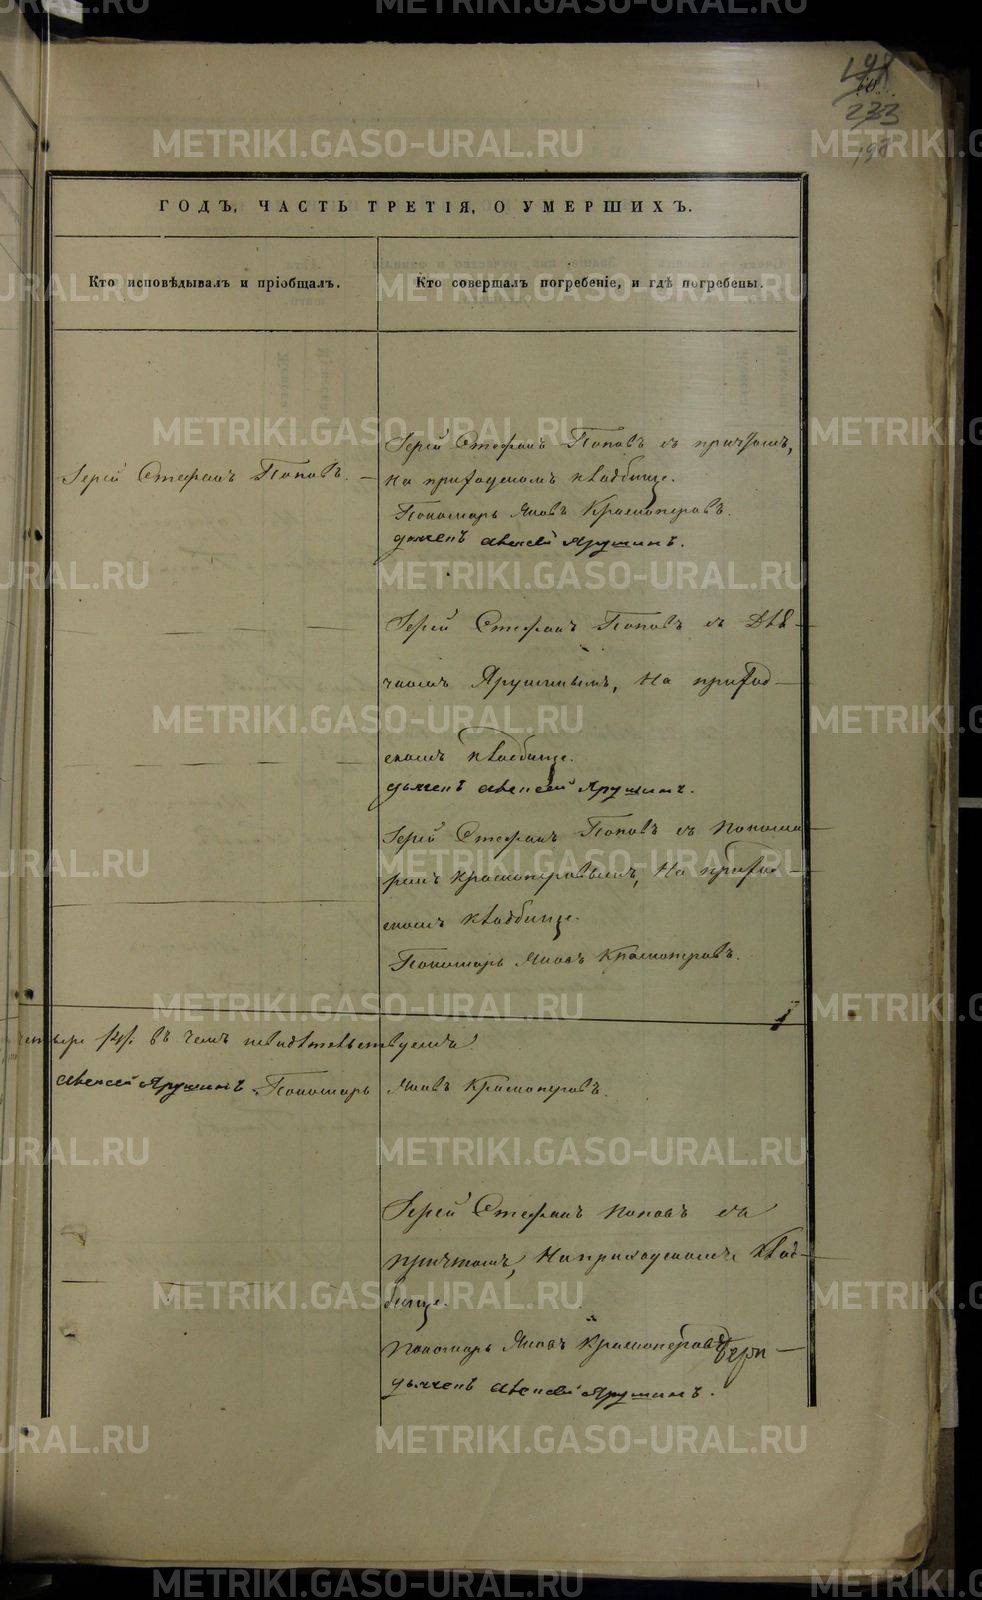 198
60.
233
198
ГОДЪ, ЧАСТЬ ТРЕТІЯ, О УМЕРШИХЪ.
Кто исповѣдывалъ и пріобщалъ.
Кто совершалъ погребеніе, и гдѣ погребены.
Іерей Стефанъ Поповъ.
Іерей Стефанъ Поповъ съ причтомъ,
на приходскомъ кладбище.
Пономарь Яковъ Красноперовъ.
дьячекъ Алексей Ярушинъ.
Іерей Стефанъ Поповъ съ Дья-
чкомъ Ярушинымъ, на приход-
скомъ кладбище.
дьячекъ Алексей Ярушинъ.
Іерей Стефанъ Поповъ съ понома-
ремъ Красноперовымъ, на приход-
скомъ кладбище.
Пономарь Яковъ Красноперовъ.
четыре /4/. въ чемъ свидѣтельствуемъ
Алексей Ярушинъ Пономарь Яковъ Красноперовъ.
Іерей Стефанъ Поповъ съ
причтомъ, на приходскомъ клад-
бище.
Пономарь Яковъ Красноперовъ
дьячекъ Алексей Ярушинъ.
METRIKI.GASO-URAL.RU